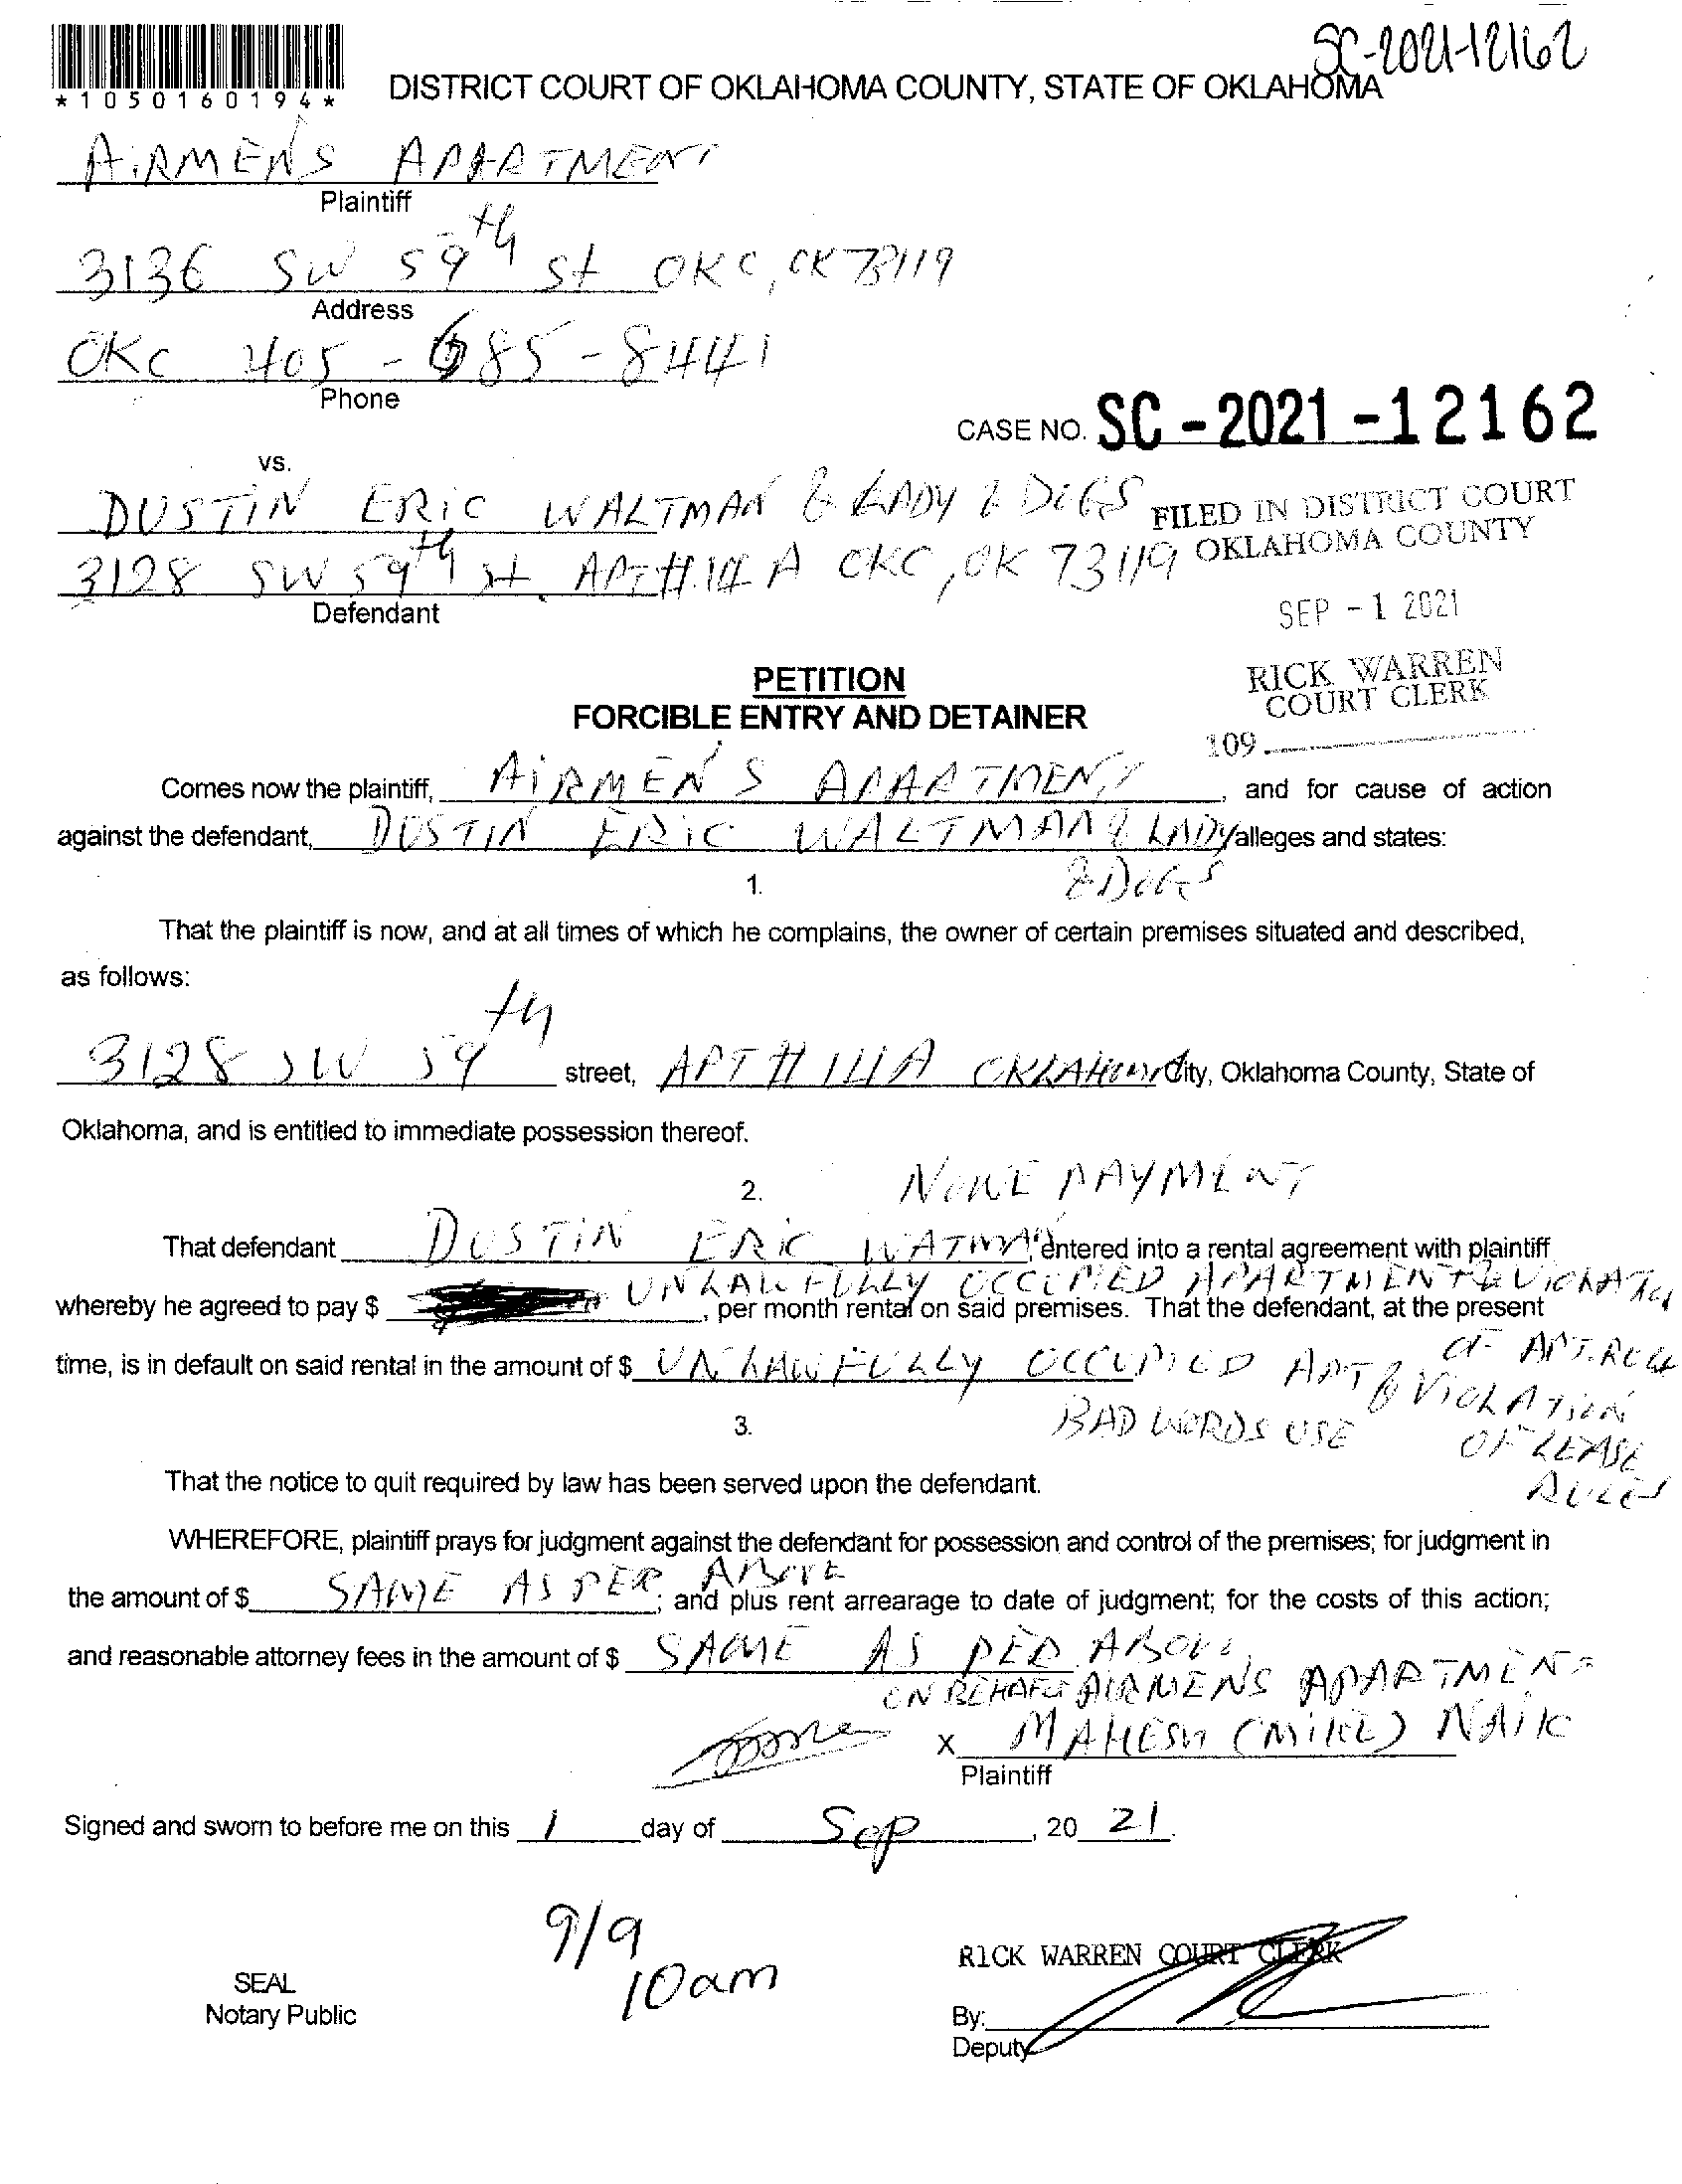 SC-2021-12162
*1050160194*
DISTRICT COURT OF OKLAHOMA COUNTY, STATE OF OKLAHOMA
AIRMENS APARTMENT
Plaintiff
3136 SW 59th St OKC, OK 73119
Address
OKC 405-685-8441
Phone
CASE NO. SC-2021-12162
vs.
DUSTIN ERIC WALTMAN & LADY & DOGS
FILED IN DISTRICT COURT
OKLAHOMA COUNTY
3128 SW 59th st. APT# 114 A OKC, OK 73119
Defendant
SEP - 1 2021
PETITION
RICK WARREN
COURT CLERK
FORCIBLE ENTRY AND DETAINER
109
Comes now the plaintiff, AIRMEN'S APARTMENT, and for cause of action
against the defendant, DUSTIN ERIC WALTMAN & LADY alleges and states:
& DOGS
1.
That the plaintiff is now, and at all times of which he complains, the owner of certain premises situated and described,
as follows:
3128 SW 59th street, APT # 114A OKLAHOMA City, Oklahoma County, State of
Oklahoma, and is entitled to immediate possession thereof.
2. NONE PAYMENT
That defendant DUSTIN ERIC WATMAN entered into a rental agreement with plaintiff
UNLAWFULLY OCCUPIED APARTMENT & VIOLATION
whereby he agreed to pay $ , per month rental on said premises. That the defendant, at the present
OF APT. RULE
time, is in default on said rental in the amount of $ UNLAWFULLY OCCUPIED APT & VIOLATION
3. BAD WORDS USE OF LEASE
RULES
That the notice to quit required by law has been served upon the defendant.
WHEREFORE, plaintiff prays for judgment against the defendant for possession and control of the premises; for judgment in
the amount of $ SAME AS PER ABOVE; and plus rent arrearage to date of judgment; for the costs of this action;
and reasonable attorney fees in the amount of $ SAME AS PER ABOVE.
ON BEHALF AIRMENS APARTMENT
x MAHESH (MIKE) NAIK
Plaintiff
Signed and sworn to before me on this 1 day of Sep, 20 21.
9/9
10am
RICK WARREN COURT CLERK
SEAL
Notary Public
By:
Deputy